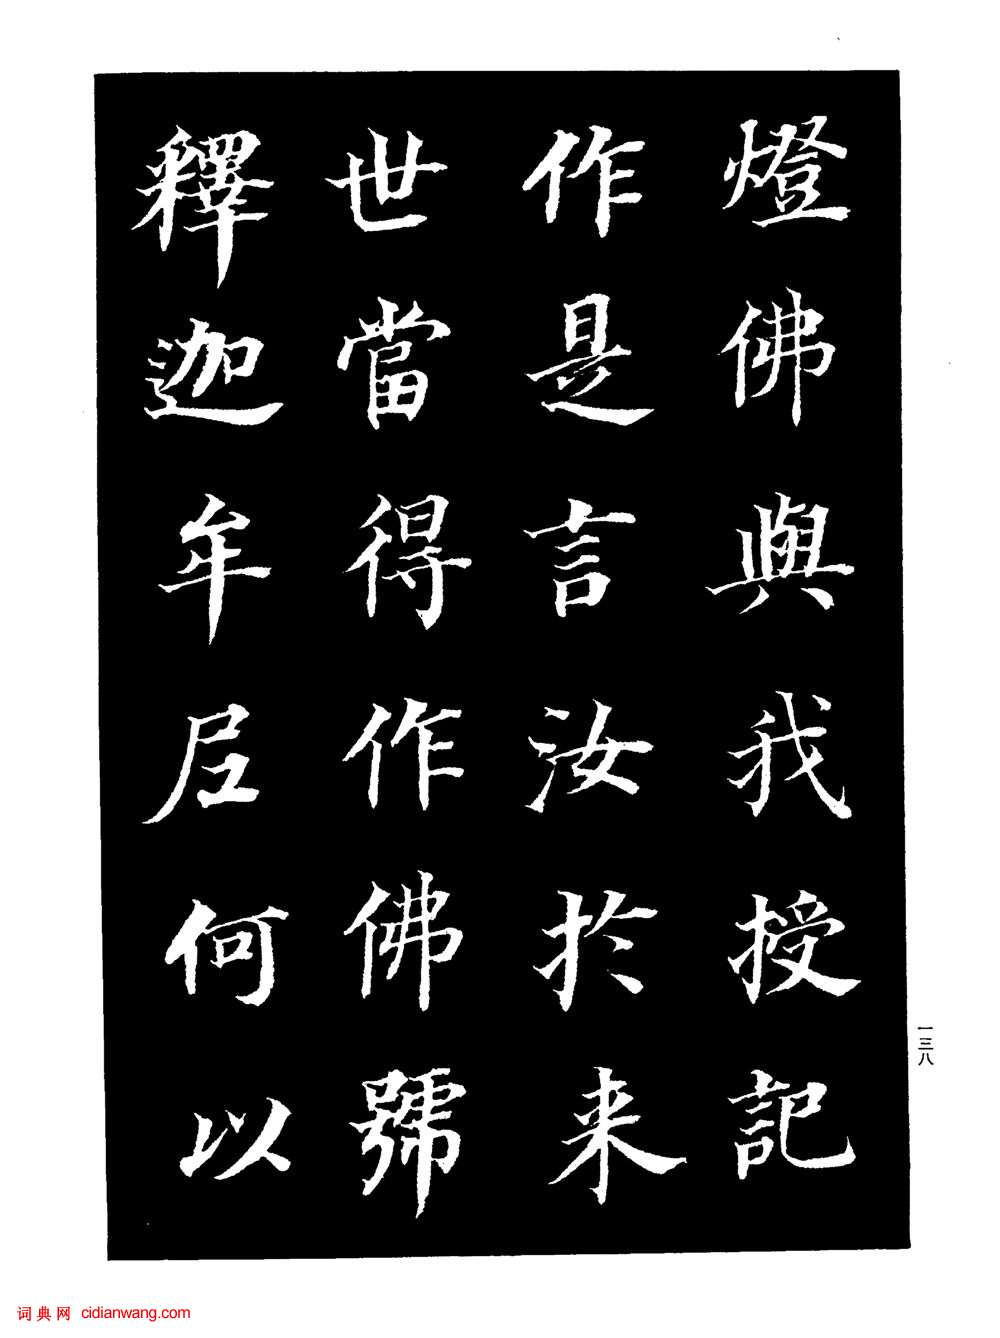 燈佛與我授記
作是言汝於来
世當得作佛號
釋迦牟尼何以
一三八
词典网 cidianwang.com